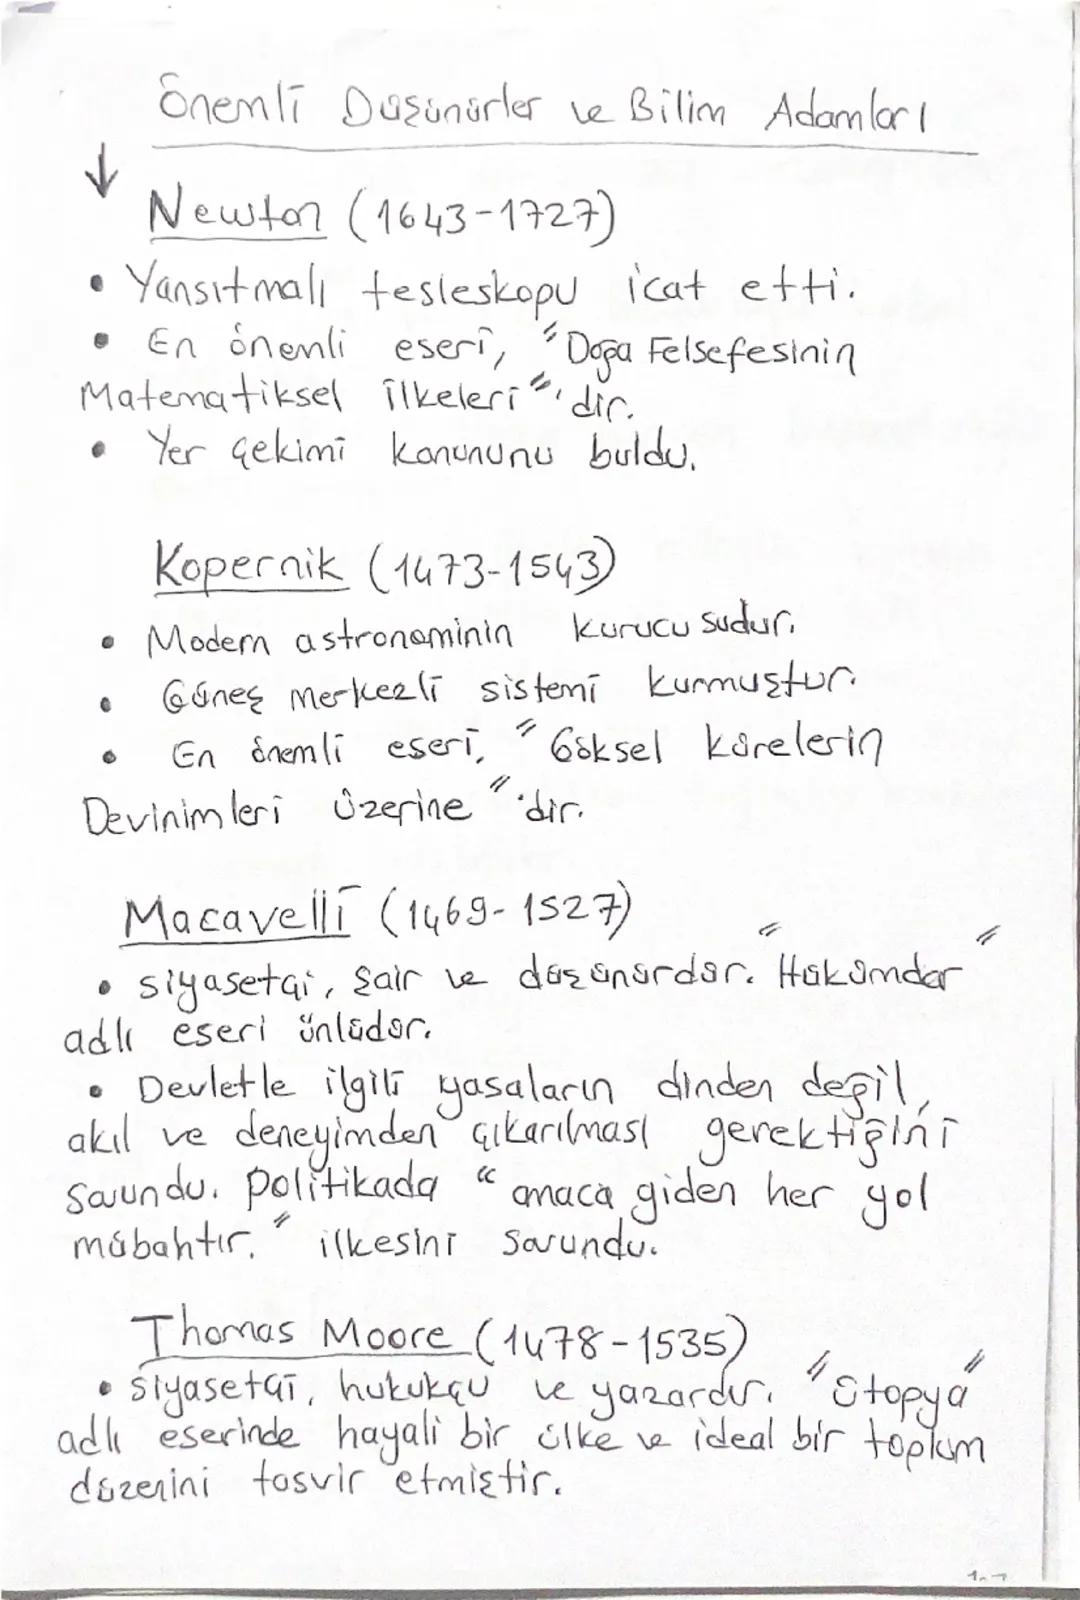 Önemli Düşünürler ve Bilim Adamları
Newton (1643-1727)
• Yansıtmalı tesleskopu icat etti.
• En önemli eseri, "Doğa Felsefesinin
Matematiksel ilkeleri"'dir.
• Yer çekimi kanununu buldu.
Kopernik (1473-1543)
• Modern astronominin kurucusudur.
• Güneş merkezli sistemi kurmuştur.
• En önemli eseri, "Göksel kürelerin
Devinimleri üzerine"'dir.
Macavelli (1469-1527)
• siyasetçi, şair ve düşünürdür. "Hükümdar"
adlı eseri ünlüdür.
• Devletle ilgili yasaların dinden değil,
akıl ve deneyimden çıkarılması gerektiğini
savundu. politikada "amaca giden her yol
mübahtır." ilkesini savundu.
Thomas Moore (1478-1535)
• siyasetçi, hukukçu ve yazardır. "Ütopya"
adlı eserinde hayali bir ülke ve ideal bir toplum
düzenini tasvir etmiştir.